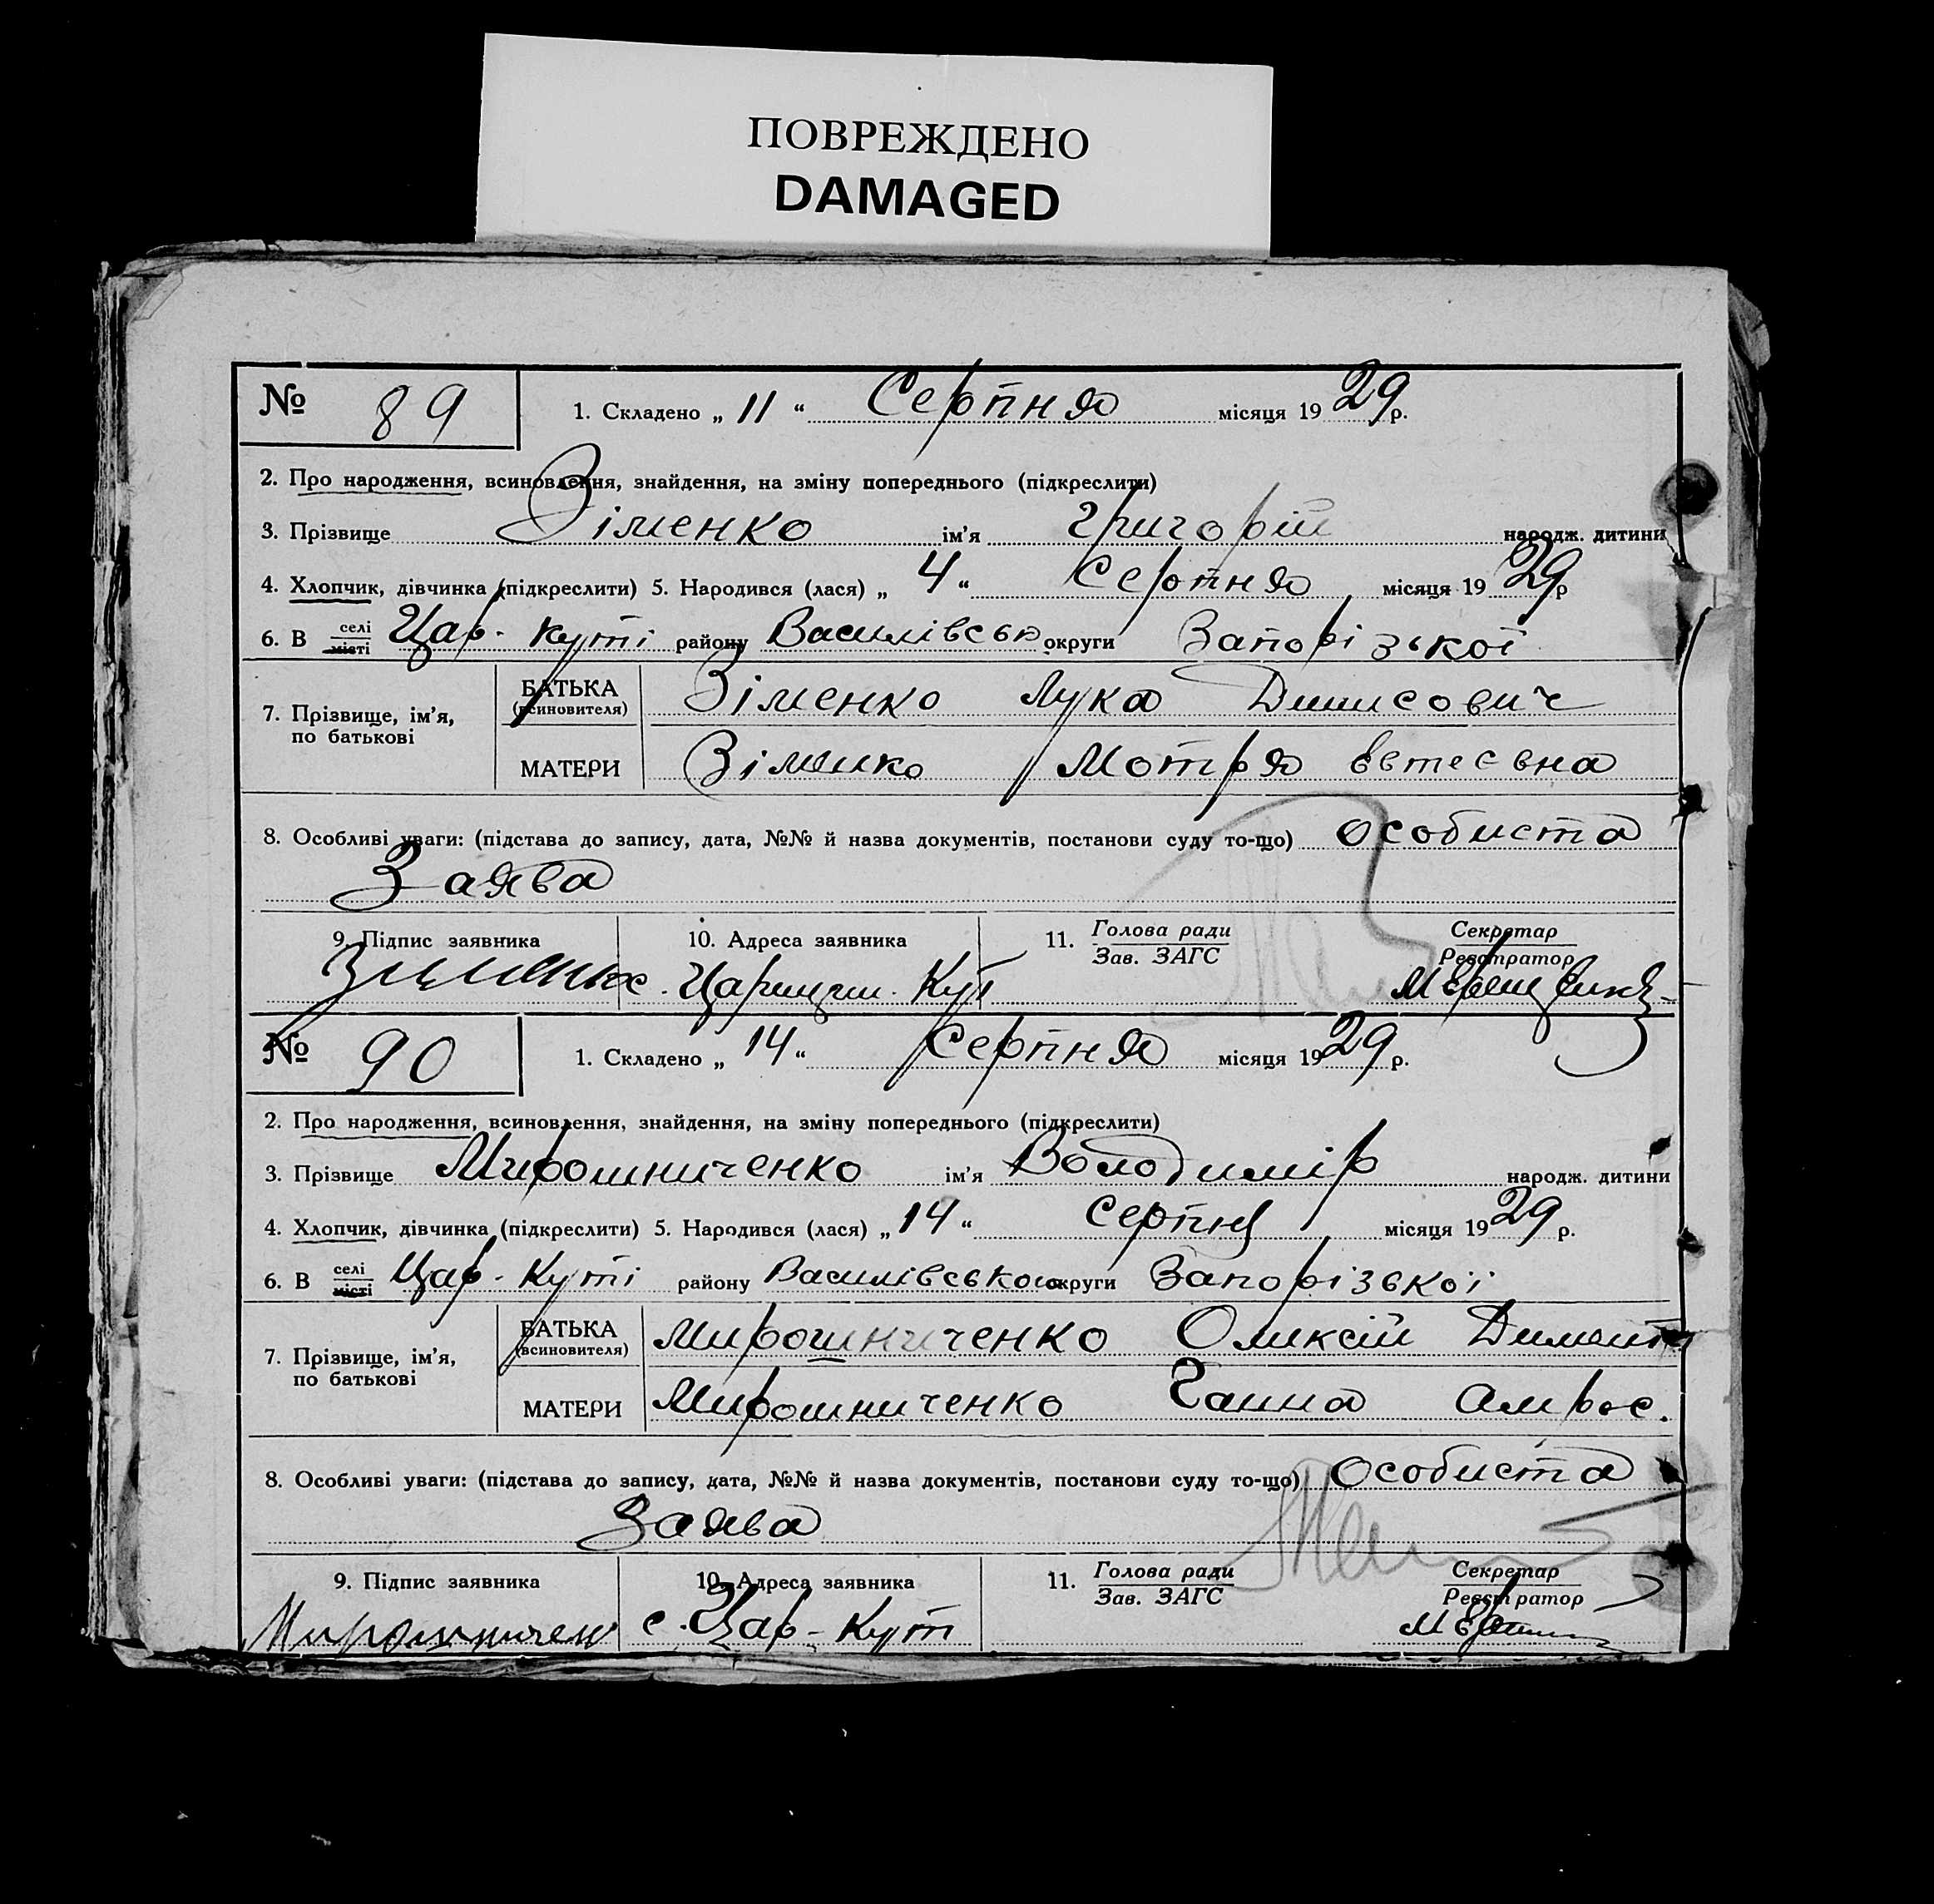 ПОВРЕЖДЕНО
DAMAGED
№ 89 1. Складено „ 11 “ Серпня місяця 1929 р.
2. Про народження, всиновлення, знайдення, на зміну попереднього (підкреслити)
3. Прізвище Зіменко ім'я Григорій народж. дитини
4. Хлопчик, дівчинка (підкреслити) 5. Народився (лася) „ 4 “ Серпня місяця 1929 р
6. В селі місті Цар. Куті району Василівськ округи Запорізької
7. Прізвище, ім'я, по батькові
БАТЬКА (всиновителя) Зіменко Лука Динисович
МАТЕРИ Зіменко Мотря
8. Особливі уваги: (підстава до запису, дата, №№ й назва документів, постанови суду то-що) особиста
Заява
9. Підпис заявника 10. Адреса заявника 11. Голова ради Зав. ЗАГС Секретар Реєстратор
с. Царицин. Кут
№ 90 1. Складено „ 14 “ Серпня місяця 1929 р.
2. Про народження, всиновлення, знайдення, на зміну попереднього (підкреслити)
3. Прізвище Мирошниченко ім'я Володимір народж. дитини
4. Хлопчик, дівчинка (підкреслити) 5. Народився (лася) „ 14 “ серпня місяця 1929 р.
6. В селі місті Цар. Куті району Василівського округи Запорізької
7. Прізвище, ім'я, по батькові
БАТЬКА (всиновителя) Мирошниченко Оликсій
МАТЕРИ Мирошниченко Ганна Амрос.
8. Особливі уваги: (підстава до запису, дата, №№ й назва документів, постанови суду то-що) Особиста
Заява
9. Підпис заявника 10. Адреса заявника 11. Голова ради Зав. ЗАГС Секретар Реєстратор
Мирошничен с. Цар-Кут